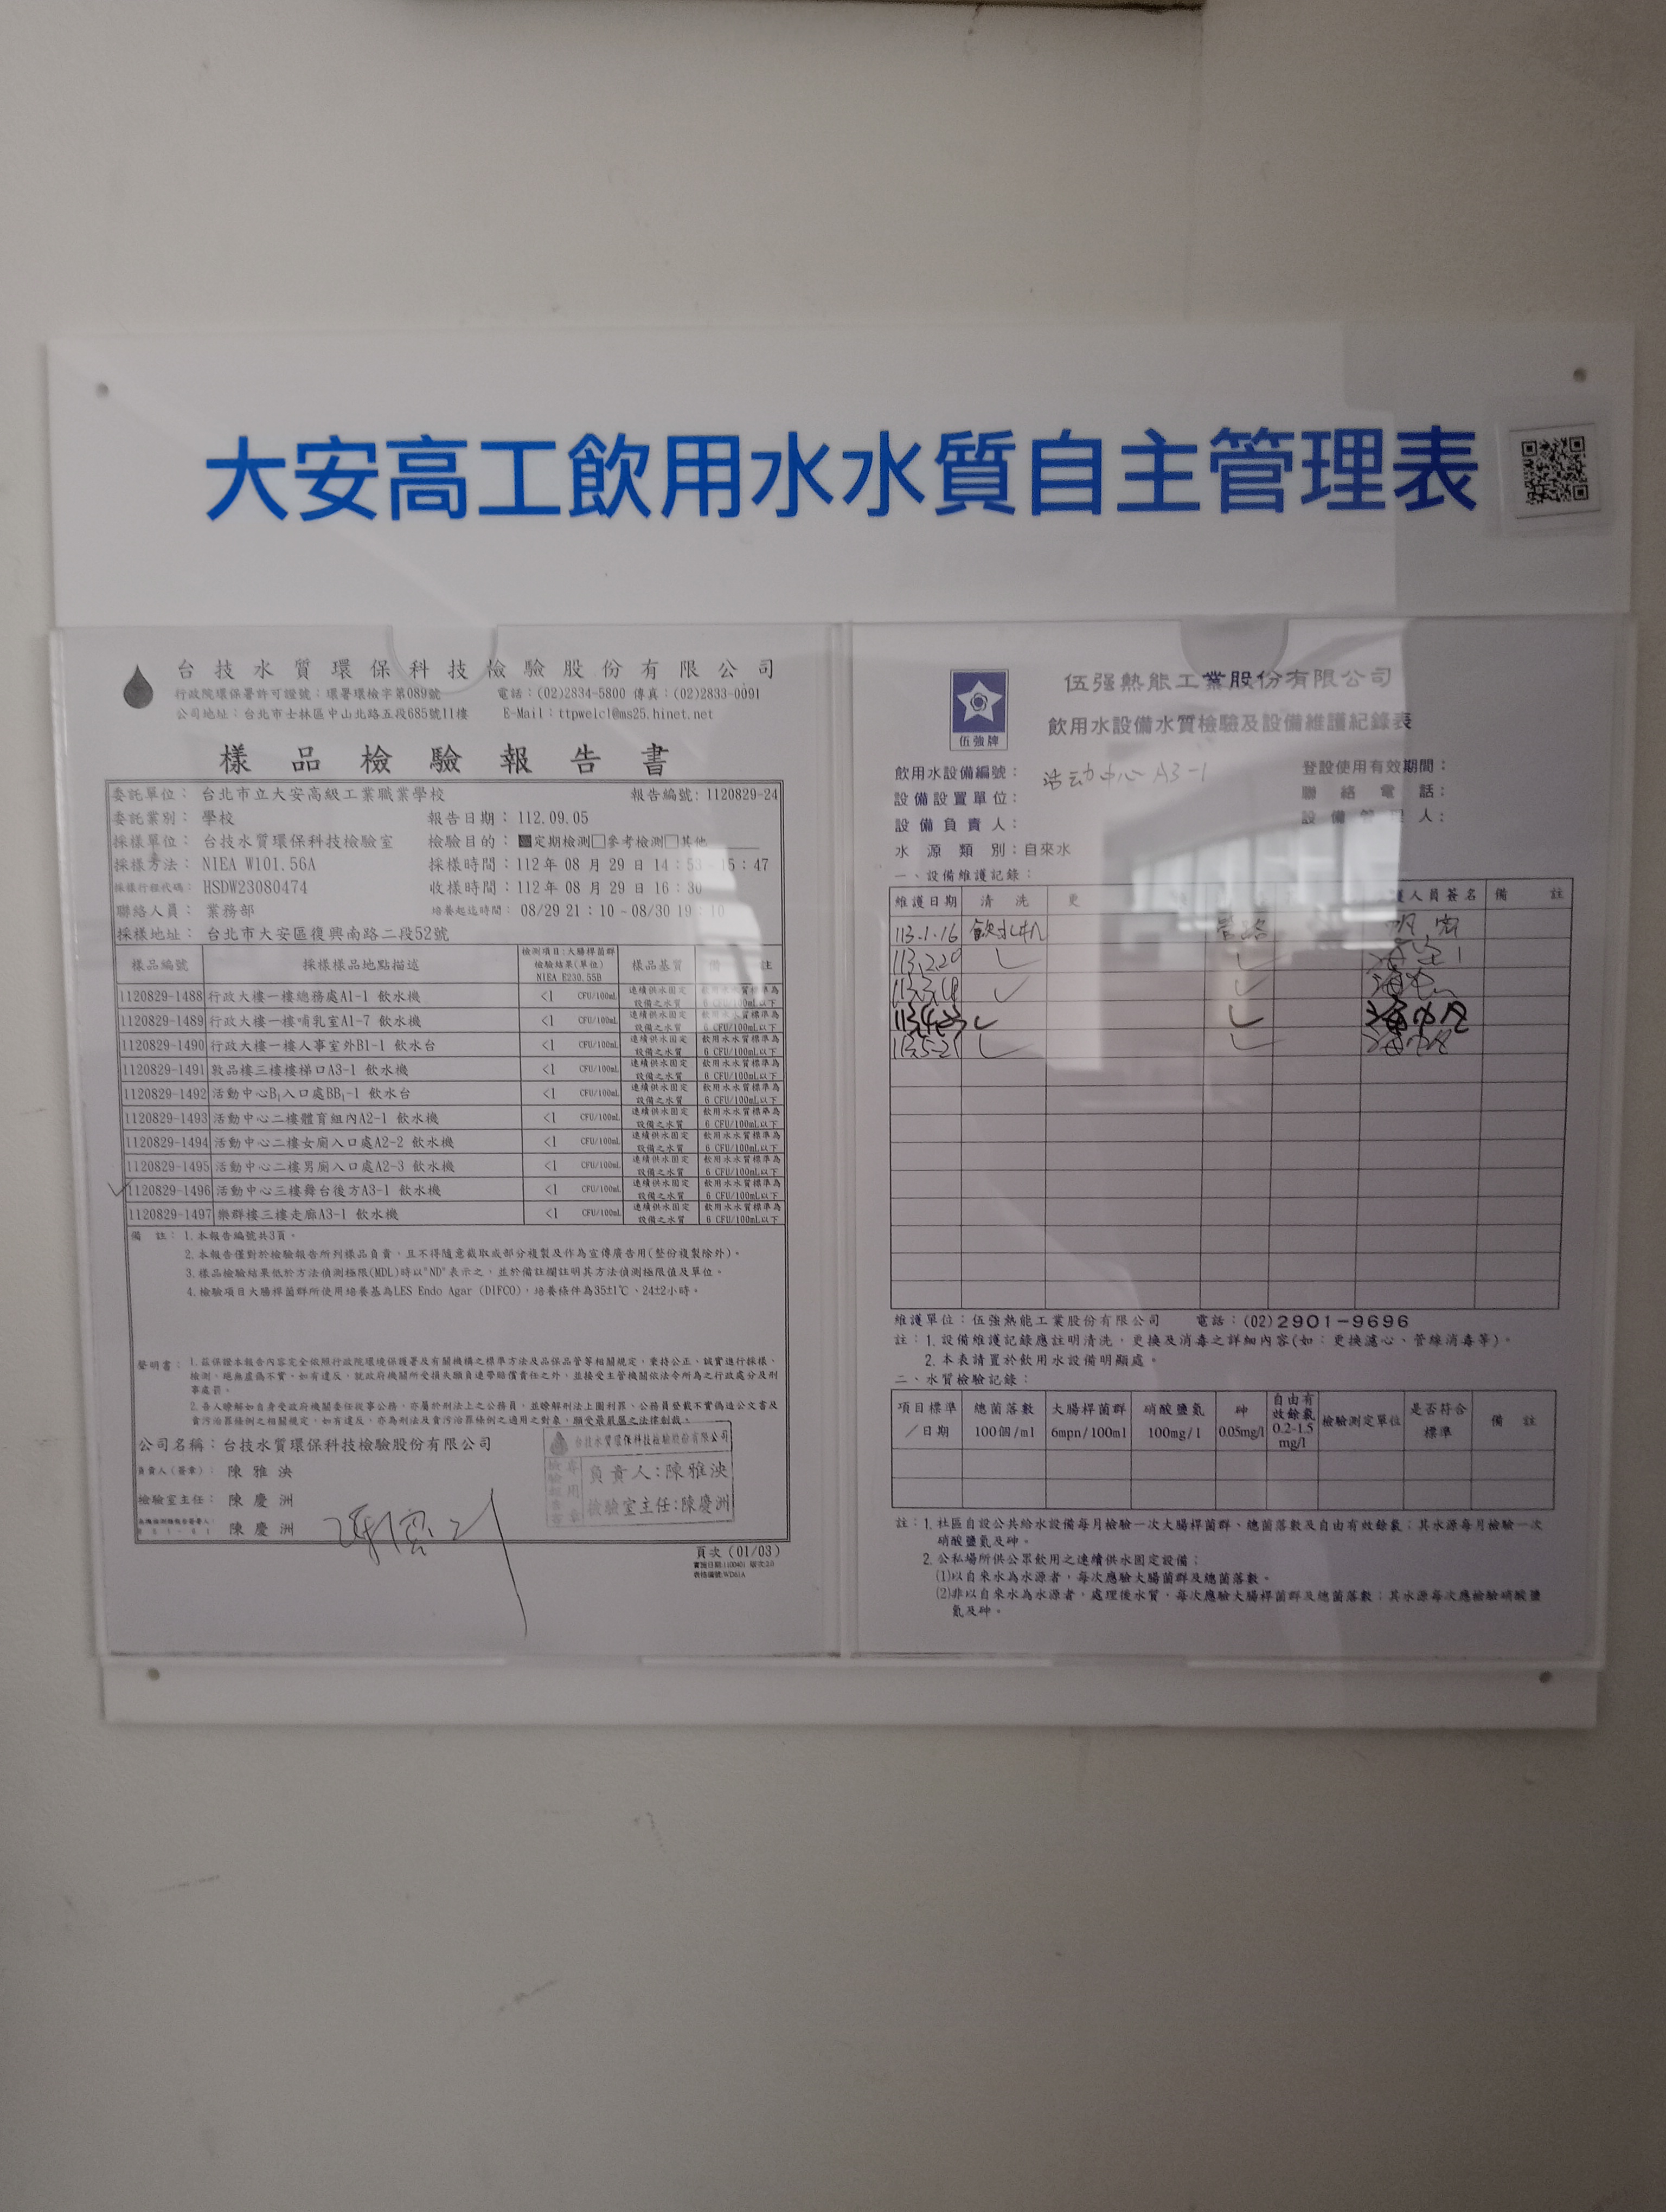 大安高工飲用水水質自主管理表
台技水質環保科技檢驗股份有限公司
行政院環保署許可證號：環署環檢字第089號 電話：(02)2834-5800 傳真：(02)2833-0091
公司地址：台北市士林區中山北路五段685號11樓 E-Mail：ttpwelcl@ms25.hinet.net
樣品檢驗報告書
委託單位： 台北市立大安高級工業職業學校 報告編號：1120829-24
委託業別： 學校 報告日期：112.09.05
採樣單位： 台技水質環保科技檢驗室 檢驗目的：■定期檢測□參考檢測□其他
採樣方法： NIEA W101.56A 採樣時間：112年 08 月 29 日 14：53 - 15：47
採樣行程代碼： HSDW23080474 收樣時間：112年 08 月 29 日 16：30
聯絡人員： 業務部 培養起迄時間： 08/29 21：10 ~ 08/30 19：10
採樣地址： 台北市大安區復興南路二段52號
樣品編號 採樣樣品地點描述 檢測項目：大腸桿菌群 檢驗結果(單位) NIEA E230.55B 樣品基質 備註
1120829-1488 行政大樓一樓總務處A1-1 飲水機 <1 CFU/100mL 連續供水固定設備之水質 飲用水水質標準為6 CFU/100mL以下
1120829-1489 行政大樓一樓哺乳室A1-7 飲水機 <1 CFU/100mL 連續供水固定設備之水質 飲用水水質標準為6 CFU/100mL以下
1120829-1490 行政大樓一樓人事室外B1-1 飲水台 <1 CFU/100mL 連續供水固定設備之水質 飲用水水質標準為6 CFU/100mL以下
1120829-1491 敦品樓三樓樓梯口A3-1 飲水機 <1 CFU/100mL 連續供水固定設備之水質 飲用水水質標準為6 CFU/100mL以下
1120829-1492 活動中心B1入口處BB1-1 飲水台 <1 CFU/100mL 連續供水固定設備之水質 飲用水水質標準為6 CFU/100mL以下
1120829-1493 活動中心二樓體育組內A2-1 飲水機 <1 CFU/100mL 連續供水固定設備之水質 飲用水水質標準為6 CFU/100mL以下
1120829-1494 活動中心二樓女廁入口處A2-2 飲水機 <1 CFU/100mL 連續供水固定設備之水質 飲用水水質標準為6 CFU/100mL以下
1120829-1495 活動中心二樓男廁入口處A2-3 飲水機 <1 CFU/100mL 連續供水固定設備之水質 飲用水水質標準為6 CFU/100mL以下
1120829-1496 活動中心三樓舞台後方A3-1 飲水機 <1 CFU/100mL 連續供水固定設備之水質 飲用水水質標準為6 CFU/100mL以下
1120829-1497 樂群樓三樓走廊A3-1 飲水機 <1 CFU/100mL 連續供水固定設備之水質 飲用水水質標準為6 CFU/100mL以下
備 註：1.本報告編號共3頁。
2.本報告僅對於檢驗報告所列樣品負責，且不得隨意截取或部分複製及作為宣傳廣告用(整份複製除外)。
3.樣品檢驗結果低於方法偵測極限(MDL)時以"ND"表示之，並於備註欄註明其方法偵測極限值及單位。
4.檢驗項目大腸桿菌群所使用培養基為LES Endo Agar (DIFCO)，培養條件為35±1℃、24±2小時。
聲明書：1.茲保證本報告內容完全依照行政院環境保護署及有關機構之標準方法及品保品管等相關規定，秉持公正、誠實進行採樣、
檢測，絕無虛偽不實，如有違反，就政府機關所受損失願負連帶賠償責任之外，並接受主管機關依法令所為之行政處分及刑
事處罰。
2.吾人瞭解如自身受政府機關委任從事公務，亦屬於刑法上之公務員，並瞭解刑法上圖利罪、公務員登載不實偽造公文書及
貪污治罪條例之相關規定，如有違反，亦為刑法及貪污治罪條例之適用之對象，願受最嚴厲之法律制裁。
公司名稱：台技水質環保科技檢驗股份有限公司
負責人(簽章)： 陳雅泱
檢驗室主任： 陳慶洲
陳慶洲
台技水質環保科技檢驗股份有限公司
檢驗報告專用章
負責人：陳雅泱
檢驗室主任：陳慶洲
頁次 (01/03)
實施日期:1100401 版次:2.0
表格編號:WD61A
伍強牌
伍强熱能工業股份有限公司
飲用水設備水質檢驗及設備維護紀錄表
飲用水設備編號： 活动中心 A3-1 登設使用有效期間：
設備設置單位： 聯絡電話：
設備負責人： 設備管理人：
水源類別：自來水
一、設備維護記錄：
維護日期 清洗 更 護人員簽名 備註
113.1.16 飲水机 管路
113.2.20 ✓ ✓
✓ ✓
✓ ✓
113.5.21 ✓ ✓
維護單位：伍強熱能工業股份有限公司 電話：(02)2901-9696
註：1.設備維護記錄應註明清洗，更換及消毒之詳細內容(如：更換濾心、管線消毒等)。
2.本表請置於飲用水設備明顯處。
二、水質檢驗記錄：
項目標準／日期 總菌落數 100個/ml 大腸桿菌群 6mpn/100ml 硝酸鹽氮 100mg/l 砷 0.05mg/l 自由有效餘氯 0.2-1.5 mg/l 檢驗測定單位 是否符合標準 備註
註：1.社區自設公共給水設備每月檢驗一次大腸桿菌群、總菌落數及自由有效餘氯；其水源每月檢驗一次
硝酸鹽氮及砷。
2.公私場所供公眾飲用之連續供水固定設備：
(1)以自來水為水源者，每次應驗大腸菌群及總菌落數。
(2)非以自來水為水源者，處理後水質，每次應驗大腸桿菌群及總菌落數；其水源每次應檢驗硝酸鹽
氮及砷。